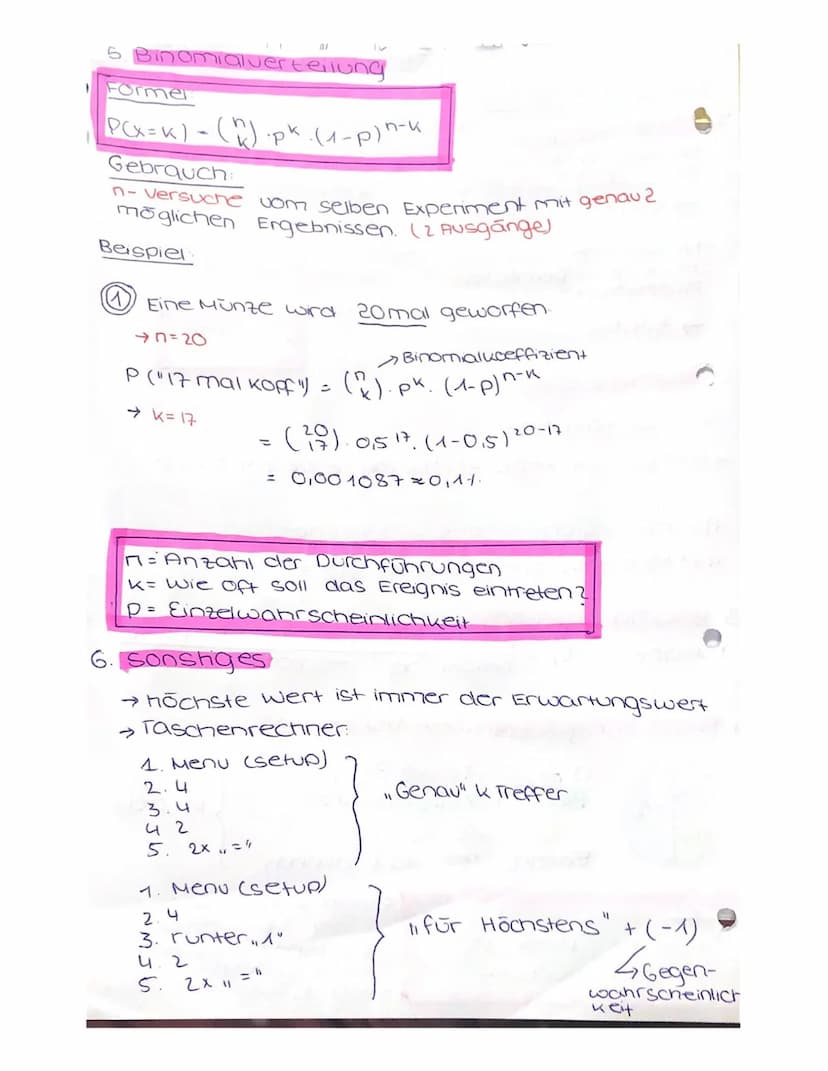 5 Binomialverteilung
Formel
P(x=k) = (n k) · p^k · (1-p)^n-k
Gebrauch:
n- Versuche vom selben Experiment mit genau 2
möglichen Ergebnissen. (2 Ausgänge)
Beispiel:
① Eine Münze wird 20mal geworfen.
→ n=20
→ Binomialkoeffizient
P("17 mal Kopf") = (n k) · p^k · (1-p)^n-k
→ k=17
= (20 17) · 0,5^17 · (1-0,5)^20-17
= 0,001087 ≈ 0,1%
n = Anzahl der Durchführungen
k = Wie oft soll das Ereignis eintreten?
p = Einzelwahrscheinlichkeit
6. Sonstiges
→ höchste Wert ist immer der Erwartungswert
→ Taschenrechner:
1. Menu (setup)
2. 4
3. 4
4 2
5. 2x „="
„Genau" k Treffer
1. Menu (setup)
2. 4
3. runter „1"
4. 2
5. 2x „="
„für Höchstens" + (-1)
↳ Gegen-
wahrscheinlich
keit